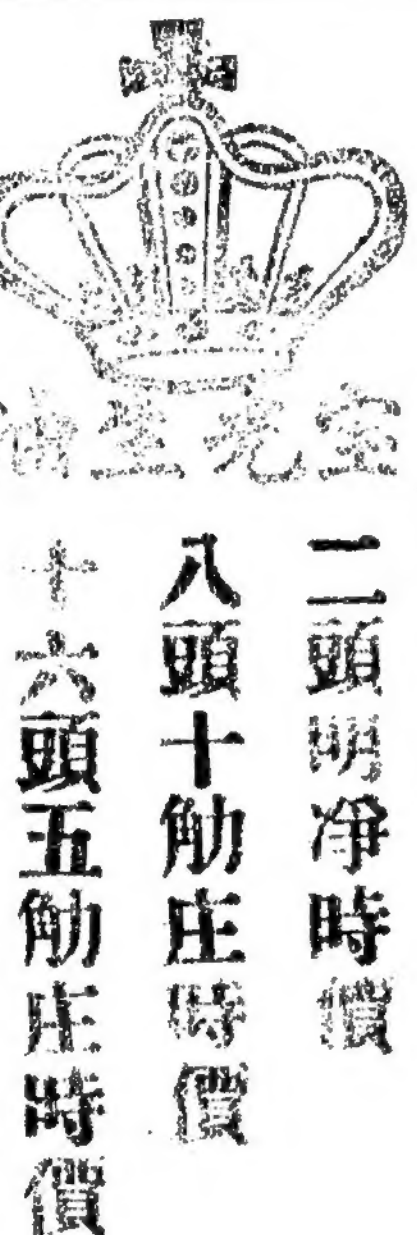 宝光油
二頭明净時價
八頭十觔庄時價
十六頭五觔庄時價